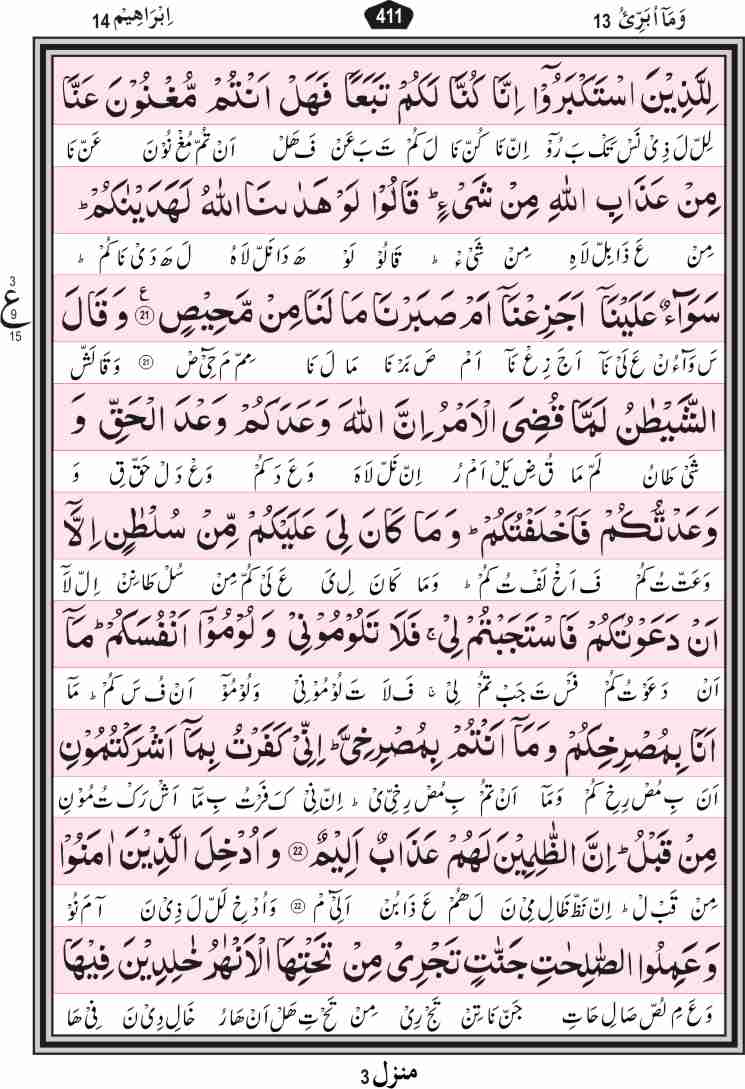 وَمَآ اُبَرِّئُ 13
411
اِبْرَاهِيْم 14
لِلَّذِيْنَ اسْتَكْبَرُوْٓا اِنَّا كُنَّا لَكُمْ تَبَعًا فَهَلْ اَنْتُمْ مُّغْنُوْنَ عَنَّا
لِلْ لَ ذِىْ نَسْ تَكْ بَ رُوْٓ اِنْ نَا كُنْ نَا لَ كُمْ تَ بَ عَنْ فَ هَلْ اَنْ تُمْ مُّغْ نُوْنَ عَنْ نَا
مِنْ عَذَابِ اللّٰهِ مِنْ شَىْءٍ ؕ قَالُوْا لَوْ هَدٰىنَا اللّٰهُ لَهَدَيْنٰكُمْ ؕ
مِنْ عَ ذَا بِلْ لَاهِ مِنْ شَىْءَ ؕ قَا لُوْ لَوْ هَ دَا نَلْ لَاهُ لَ هَ دَىْ نَا كُمْ ؕ
سَوَآءٌ عَلَيْنَآ اَجَزِعْنَآ اَمْ صَبَرْنَا مَا لَنَا مِنْ مَّحِيْصٍ ۝21 ع وَ قَالَ
سَ وَآ ءُنْ عَ لَىْ نَآ اَ جَ زِعْ نَآ اَمْ صَ بَرْ نَا مَا لَ نَا مِمْ مَ حِىْٓ صْ ۝21 وَ قَا لَشْ
3
ع
9
15
الشَّيْطٰنُ لَمَّا قُضِىَ الْاَمْرُ اِنَّ اللّٰهَ وَعَدَكُمْ وَعْدَ الْحَقِّ وَ
شَىْ طَانُ لَمْ مَا قُ ضِ يَلْ اَمْ رُ اِنْ نَلْ لَاهَ وَ عَ دَ كُمْ وَعْ دَ لْ حَقْ قِ وَ
وَعَدْتُّكُمْ فَاَخْلَفْتُكُمْ ؕ وَ مَا كَانَ لِىَ عَلَيْكُمْ مِّنْ سُلْطٰنٍ اِلَّآ
وَ عَتْ تُ كُمْ فَ اَخْ لَفْ تُ كُمْ ؕ وَمَا كَانَ لِ ىَ عَ لَىْ كُمْ مِنْ سُلْ طَا نِنْ اِلْ لَآ
اَنْ دَعَوْتُكُمْ فَاسْتَجَبْتُمْ لِىْ ۚ فَلَا تَلُوْمُوْنِىْ وَ لُوْمُوْٓا اَنْفُسَكُمْ ؕ مَآ
اَنْ دَعَوْ تُ كُمْ فَسْ تَ جَبْ تُمْ لِىْ ۚ فَ لَا تَ لُوْ مُوْ نِىْ وَ لُوْ مُوْٓ اَنْ فُ سَ كُمْ ؕ مَآ
اَنَا بِمُصْرِخِكُمْ وَ مَآ اَنْتُمْ بِمُصْرِخِىَّ ؕ اِنِّىْ كَفَرْتُ بِمَآ اَشْرَكْتُمُوْنِ
اَنَ بِ مُصْ رِخِ كُمْ وَمَآ اَنْ تُمْ بِ مُصْ رِخِىْ ىَ ؕ اِنْ نِىْ كَ فَرْتُ بِ مَآ اَشْ رَكْ تُ مُوْنِ
مِنْ قَبْلُ ؕ اِنَّ الظّٰلِمِيْنَ لَهُمْ عَذَابٌ اَلِيْمٌ ۝22 وَ اُدْخِلَ الَّذِيْنَ اٰمَنُوْا
مِنْ قَبْ لُ ؕ اِنْ نَظْ ظَالِ مِىْ نَ لَ هُمْ عَ ذَا بُنْ اَلِىْٓ مْ ۝22 وَ اُدْ خِ لَلْ لَ ذِىْ نَ آ مَ نُوْ
وَ عَمِلُوا الصّٰلِحٰتِ جَنّٰتٍ تَجْرِىْ مِنْ تَحْتِهَا الْاَنْهٰرُ خٰلِدِيْنَ فِيْهَا
وَ عَ مِ لُصْ صَالِ حَاتِ جَنْ نَا تِنْ تَجْ رِىْ مِنْ تَحْ تِ هَلْ اَنْ هَارُ خَالِ دِىْ نَ فِىْ هَا
منزل 3